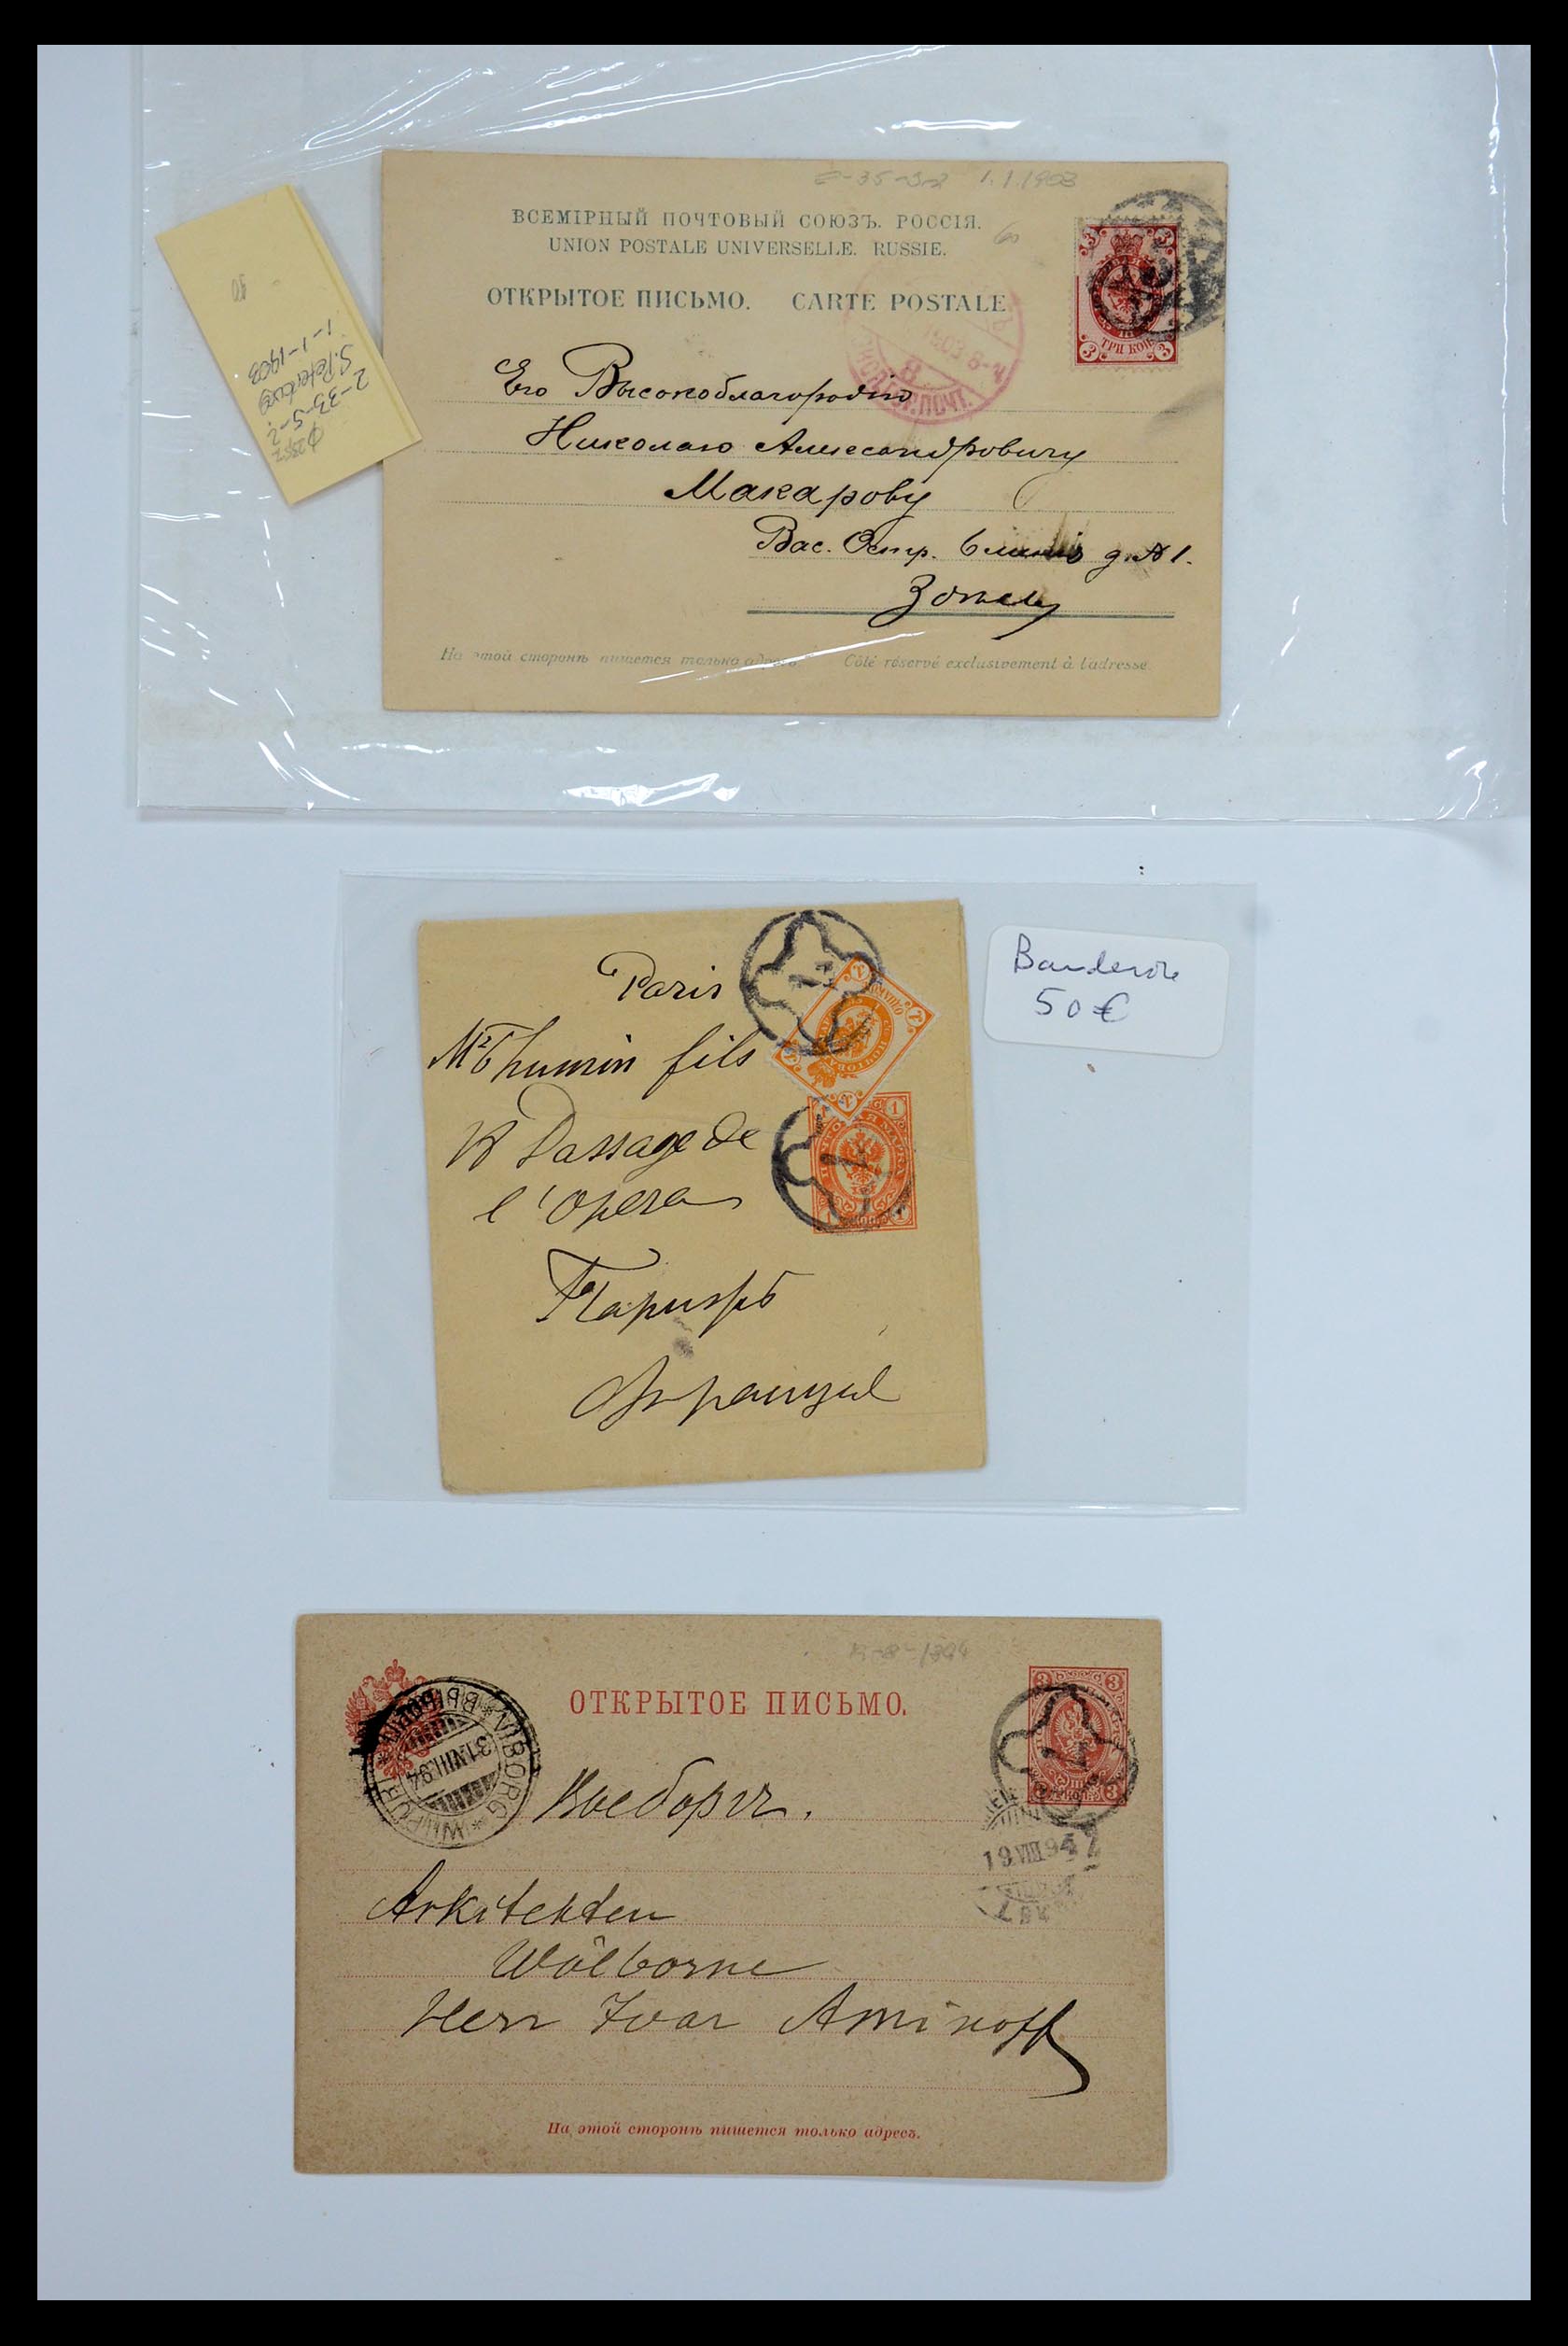 1.1.1903
ВСЕМІРНЫЙ ПОЧТОВЫЙ СОЮЗЪ. РОССІЯ.
UNION POSTALE UNIVERSELLE. RUSSIE.
ОТКРЫТОЕ ПИСЬМО. CARTE POSTALE
3 3
ТРИ КОП.
3 3
1903 8-
8
ПОЧТ.
Его Высокоблагородію
Николаю Александровичу
Макарову
Вас. Остр. 6 линія д. № 1.
Здѣсь
На этой сторонѣ пишется только адресъ. Côté réservé exclusivement à l'adresse.
S. Petersburg
1-1-1903
Banderole
50€
Paris
Mr Thumin fils
Passage de
l'Opera
Парижъ
1 1
ПОЧТОВАЯ МАРКА
1
ОТКРЫТОЕ ПИСЬМО.
3 3
3
WIBORG * WIIPURI * ВЫБОРГЪ
31.VIII.94
19.VIII.94
Выборгъ.
Arkitekten
Wälborne
Herr Ivar Aminoff
На этой сторонѣ пишется только адресъ.